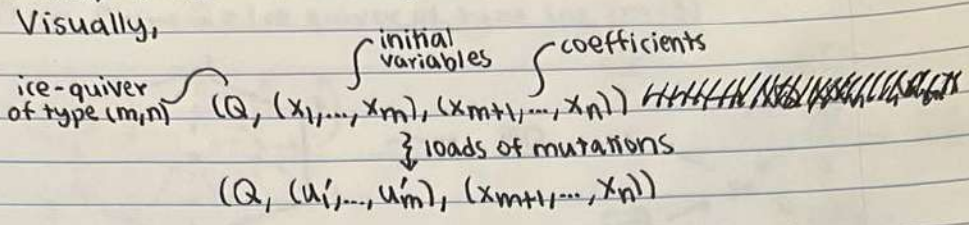 Visually,
initial
variables
coefficients
ice-quiver
of type (m,n)
(Q, (x₁,...,xₘ), (xₘ₊₁,...,xₙ))
loads of mutations
(Q, (u₁',...,uₘ'), (xₘ₊₁,...,xₙ))